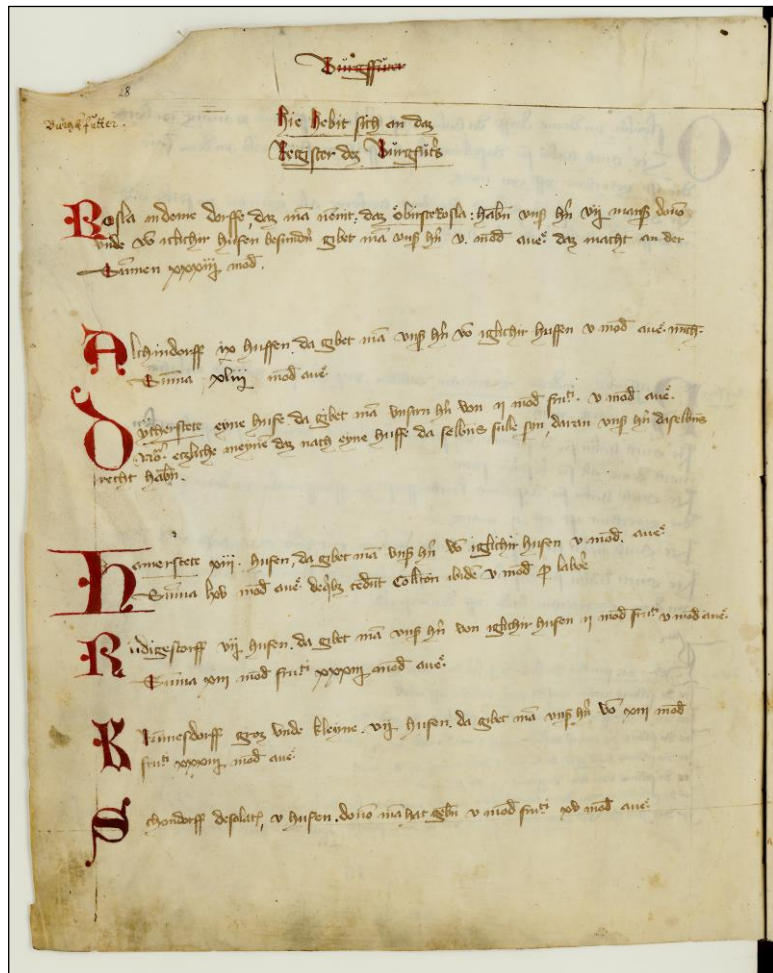 Burgffuter
28
Burgkfutter.
Hie hebit sich an daz
Register dez Burgfut's
Rosla in deme dorffe, daz mā nēnit, daz obirsteRosla: habn vnß hn vij
vnde vō iclichir hufen besundn gibet mā vnß hn v. mod aue: daz macht an der
Summen xxxiij mod.
Alchindorff ix huffen, da gibet mā vnß hn vō iglichir huffen v mod aue.
Summa xliij mod aue
eyne hufe da gibet mā vnsirn hn von ij mod fru. v mod aue.
etzliche meynē daz nach eyne huffe da selbns sulle syn, daran vnß hn daselbns
recht habn.
Hamerstete xiii. hufen, da gibet mā vnß hn vō iglichir hufen v mod. aue
Summa lxv mod aue. ibidē v mod p labore
Rudigestorff vij hufen. da gibet mā vnß hn von iglichir hufen ij mod fru v mod aue.
Summa xiii mod fru xxxiij mod aue.
groz vnde kleyne. vij hufen. da gibet mā vnß hn vō xiii mod
fru xxxiij mod aue
Schondorff desolat, v hufen. mā hat gebn v mod fru xv mod aue